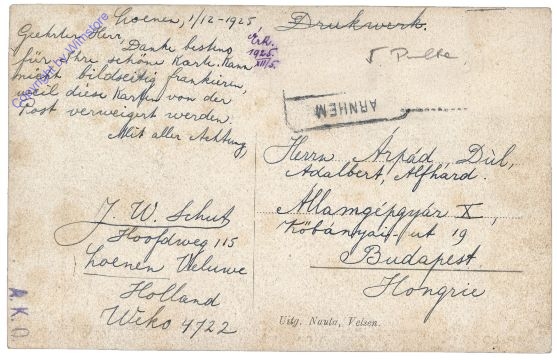 Loenen, 1/12-1925.
Geehrter Herr,
Danke bestens
für Ihre schöne Karte. Kann
nicht bildseitig frankieren,
weil diese Karten von der
Post verweigert werden.
Mit aller Achtung,
J. W. Schut
Hoofdweg 115
Loenen Veluwe
Holland
Weko 4722
Copyright by Wilnistore
Erk.
1925
XII/5.
A.K.O.
Drukwerk.
5
ARNHEM
Herrn Árpád, Dùl,
Adalbert, Alfhárd.
Államgépgyár X,
Köbányai-ut 19
Budapest.
Hongrie
Uitg. Nauta, Velsen.